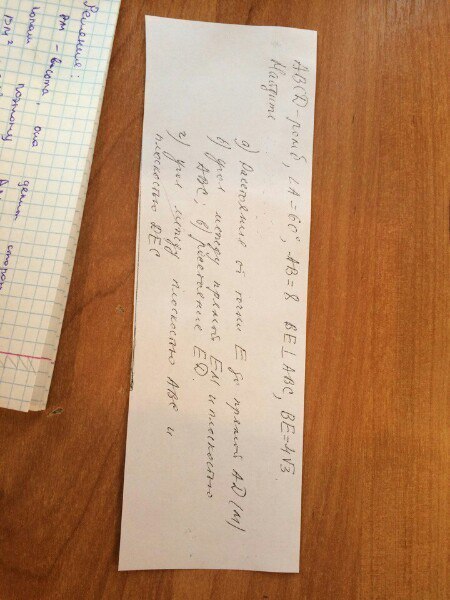 ABCD - ромб, ∠A = 60°, AB = 8 BE ⊥ ABC, BE = 4√3.
Найдите
а) Расстояние от точки E до прямой AD (M)
б) угол между прямой EM и плоскостью
ABC; в) расстояние ED.
г) угол между плоскостью ABC и
плоскостью DEC
Решение:
- высота, она
делит сторон
поэтому